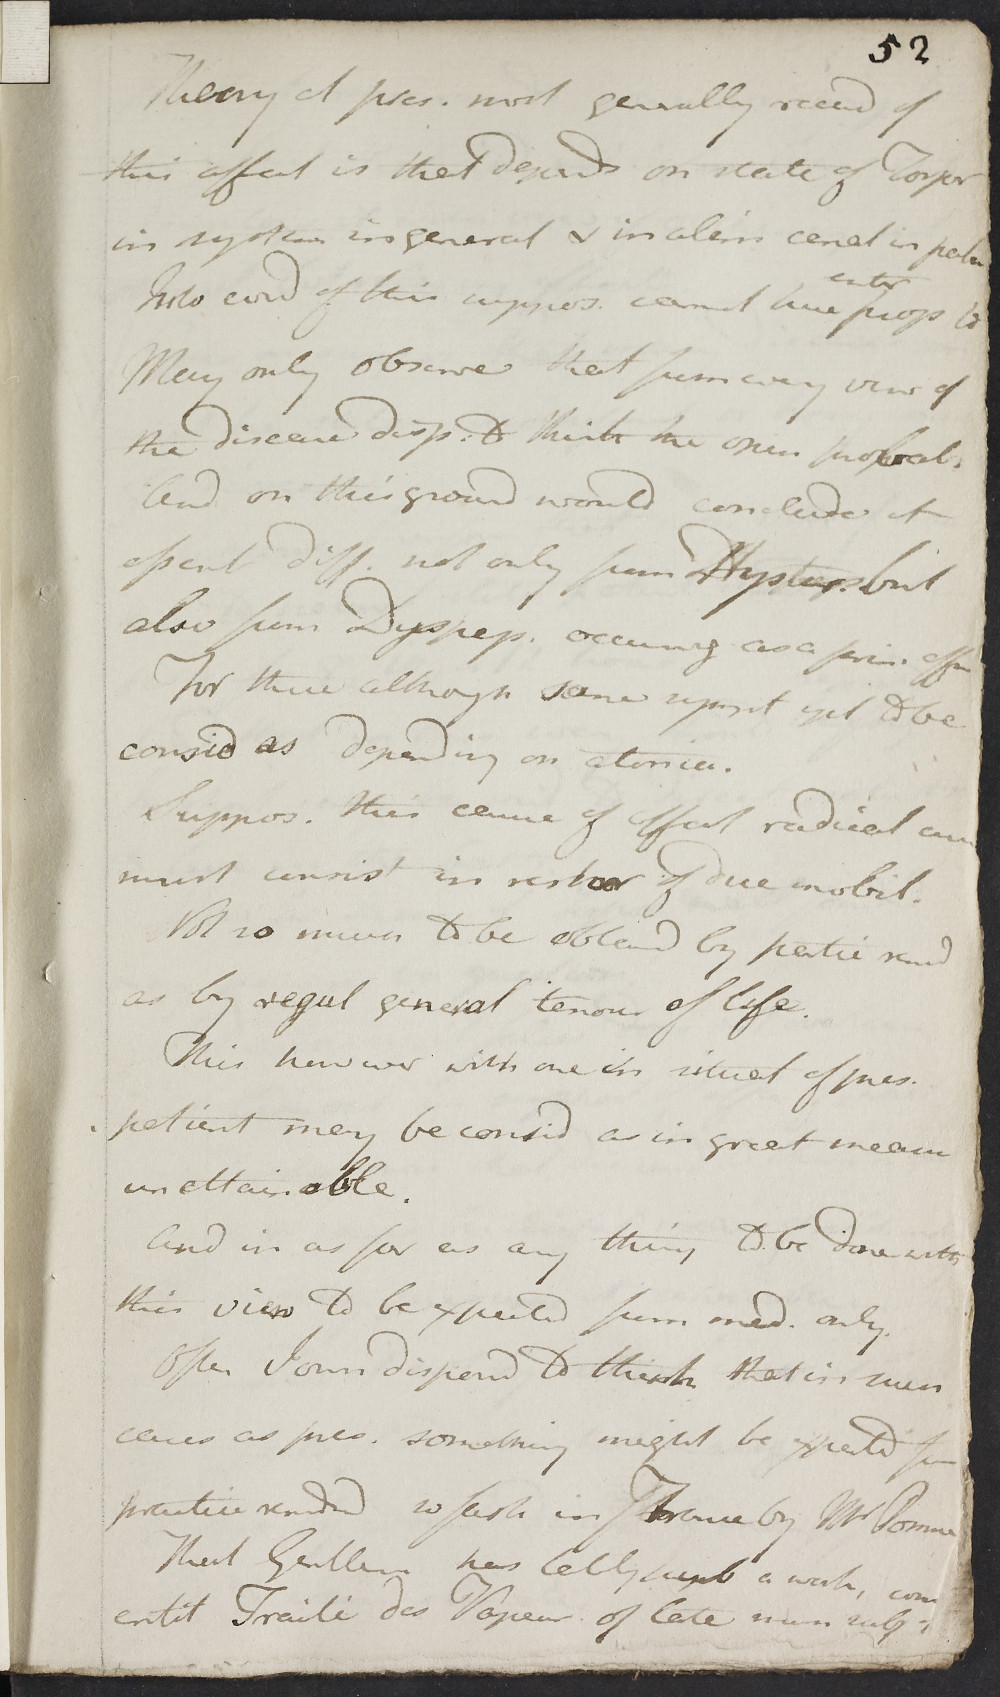 52
Theory at pres. most generally receivd of
this affect is that depends on state of Torpor
in system in general & in alim canal in
Into cond of this suppos. cannot here enter
May only observe that from every view of
the disease disp. to think the opin probab.
And on this ground would conclude it
essent diff. not only from Hyster. but
also from Dyspep. occurring as a prim. affn
For these although some sympt yet to be
consid as depending on atonia.
Suppos. this cause of affect radical cure
must consist in restor of due mobil.
Not so much to be obtaind by partic remd
as by regul general tenour of life.
This however with one in situat of pres.
patient may be consid as in great meam
unattainable.
And in as far as any thing to be done with
this view to be expected from med. only.
Often I own disposd to think that in such
cases as pres. something might be expected from
practice so in France by Mr Pomme
That Gentlem has a work,
entit Traité des Vapeur. of late